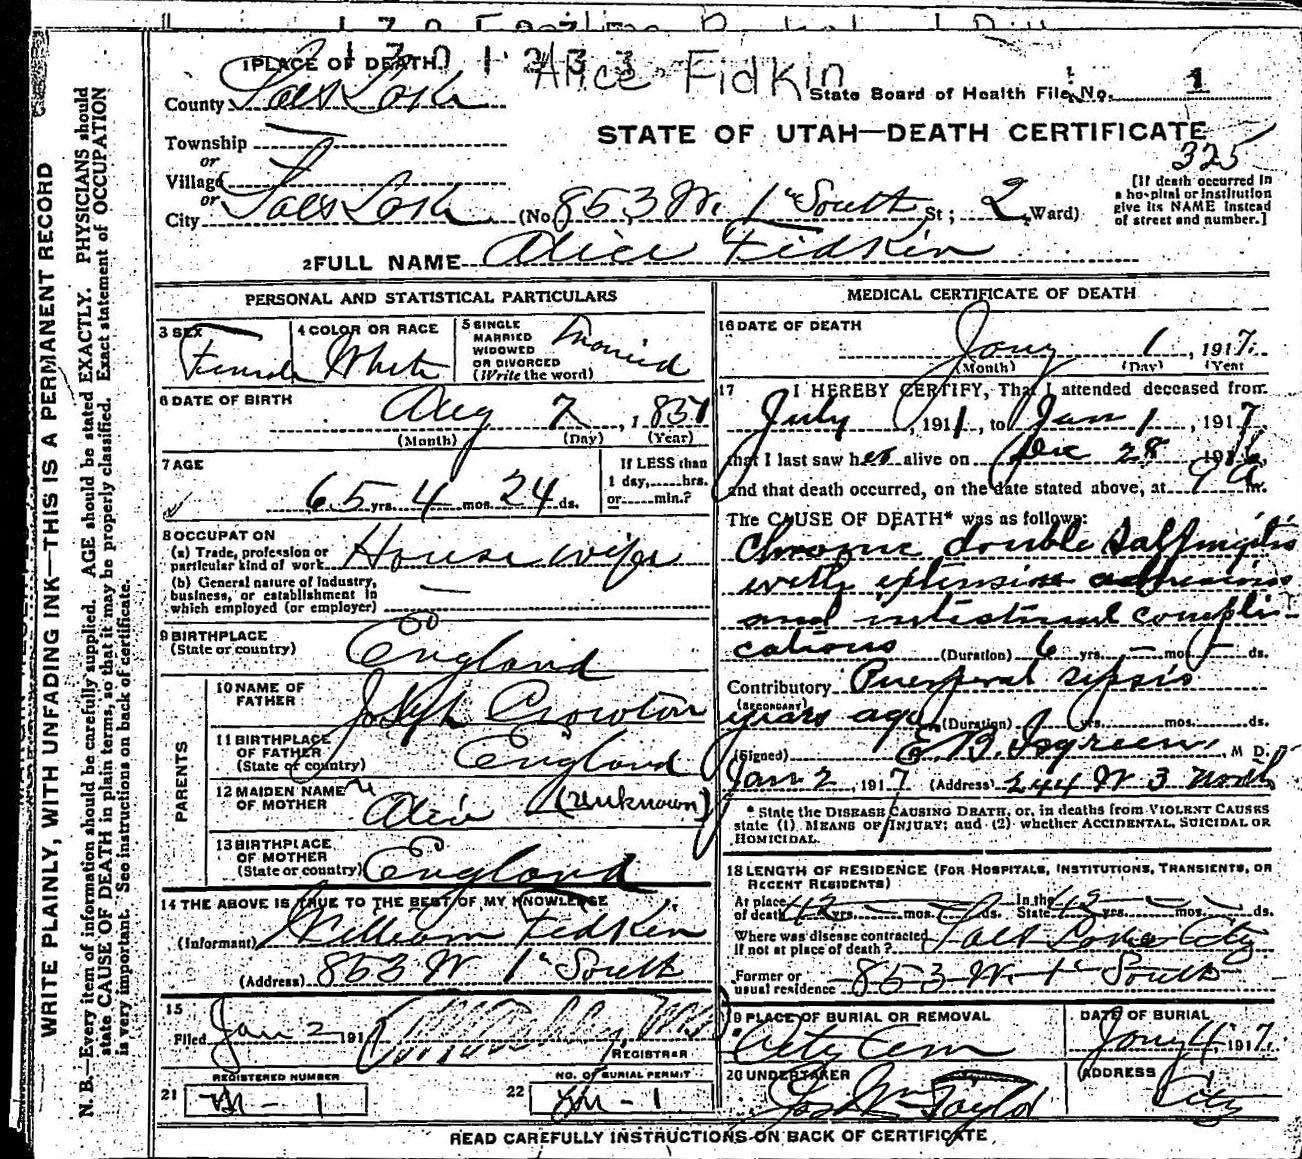 1 PLACE OF DEATH
Alice Fidkin
State Board of Health File No. 1
County Salt Lake
STATE OF UTAH—DEATH CERTIFICATE
325
Township
or
Village
or
City Salt Lake (No. 853 W. 1st South St; 2 Ward)
[If death occurred in
a hospital or institution
give its NAME instead
of street and number.]
2 FULL NAME Alice Fidkin
PERSONAL AND STATISTICAL PARTICULARS
3 SEX
Female
4 COLOR OR RACE
White
5 SINGLE
MARRIED
WIDOWED
OR DIVORCED
(Write the word)
Married
6 DATE OF BIRTH
Aug 7, 1851
(Month) (Day) (Year)
7 AGE
65 yrs. 4 mos. 24 ds.
If LESS than
1 day, hrs.
or min.?
8 OCCUPATION
(a) Trade, profession or
particular kind of work House wife
(b) General nature of Industry,
business, or establishment in
which employed (or employer)
9 BIRTHPLACE
(State or country) England
PARENTS
10 NAME OF
FATHER Joseph Crowton
11 BIRTHPLACE
OF FATHER
(State or country) England
12 MAIDEN NAME
OF MOTHER Alice (unknown)
13 BIRTHPLACE
OF MOTHER
(State or country) England
14 THE ABOVE IS TRUE TO THE BEST OF MY KNOWLEDGE
(Informant) William Fidkin
(Address) 853 W 1st South
15
Filed Jan 2 191
REGISTRAR
REGISTERED NUMBER
21 M-1
NO. OF BURIAL PERMIT
22 M-1
MEDICAL CERTIFICATE OF DEATH
16 DATE OF DEATH
Jany 1, 1917
(Month) (Day) (Year
17 I HEREBY CERTIFY, That I attended deceased from
July, 1911, to Jan 1, 1917
that I last saw her alive on Dec 28 1916,
and that death occurred, on the date stated above, at 9 A m.
The CAUSE OF DEATH* was as follows:
Chronic double Salpingitis
with extensive adhesions
and intestinal compli-
cations (Duration) 6 yrs. - mos. - ds.
Contributory Puerperal sepsis
(SECONDARY)
years ago (Duration) yrs. mos. ds.
(Signed) E. B. Isgreen, M D.
Jan 2, 1917 (Address) 244 W 3 North
* State the DISEASE CAUSING DEATH, or, in deaths from VIOLENT CAUSES
state (1) MEANS OF INJURY; and (2) whether ACCIDENTAL, SUICIDAL OR
HOMICIDAL.
18 LENGTH OF RESIDENCE (FOR HOSPITALS, INSTITUTIONS, TRANSIENTS, OR
RECENT RESIDENTS)
At place
of death 42 yrs. mos. ds. In the State 42 yrs. mos. ds.
Where was disease contracted
if not at place of death? Salt Lake City
Former or
usual residence 853 W. 1st South
19 PLACE OF BURIAL OR REMOVAL
City Cem
DATE OF BURIAL
Jany 4, 1917.
20 UNDERTAKER
Jos Wm Taylor
ADDRESS
City
READ CAREFULLY INSTRUCTIONS ON BACK OF CERTIFICATE
WRITE PLAINLY, WITH UNFADING INK—THIS IS A PERMANENT RECORD
N. B.—Every item of information should be carefully supplied. AGE should be stated EXACTLY. PHYSICIANS should
state CAUSE OF DEATH in plain terms, so that it may be properly classified. Exact statement of OCCUPATION
is very important. See instructions on back of certificate.